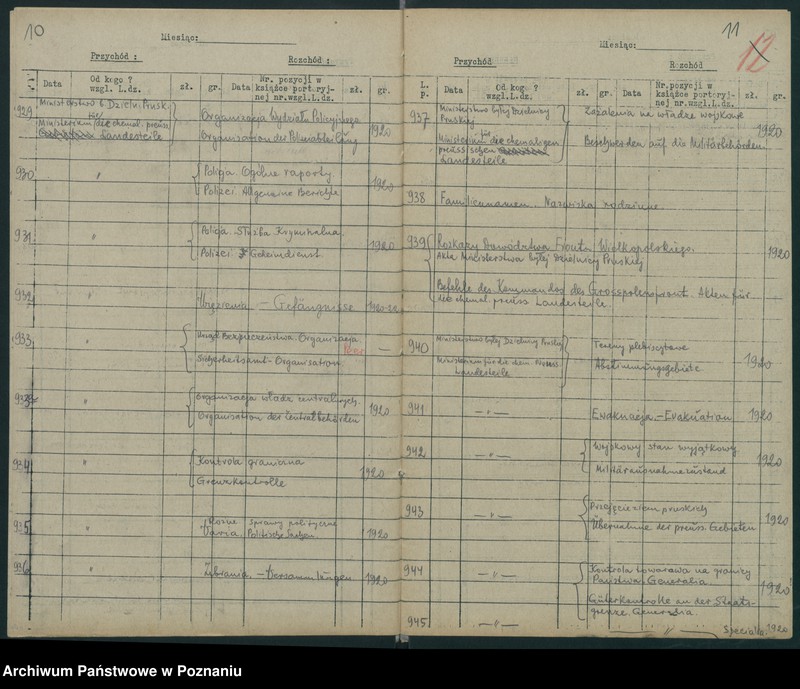 10
Miesiąc:
Przychód :
Rozchód :
Data
Od kogo ?
wzgl. L.dz.
zł.
gr.
Data
Nr. pozycji w
książce portoryj-
nej nr.wzgl.L.dz.
zł.
gr.
929
Ministerstwo b. Dzieln. Prusk.
Organizacja Wydziału Policyjnego
1920
Ministerium der ehemal. preuss.
Landesteile
Organisation der Polizeiabteilung
930
"
Policja. Ogólne raporty
1920
Polizei. Allgemeine Berichte
931
"
Policja. Służba Kryminalna.
1920
Polizei. Geheimdienst
932
"
Więzienia. – Gefängnisse
1920-22
933
Urząd Bezpieczeństwa. Organizacja
—
Sicherheitsamt - Organisation
"
Organizacja władz centralnych.
1920
Organisation der Centralbehörden
934
"
Kontrola graniczna
1920
Grenzkontrolle
935
"
Różne sprawy polityczne
Varia. Politische Sachen
1920
936
"
Zebrania. – Versammlungen
1920
11
12
Miesiąc:
Przychód
Rozchód
L.
p.
Data
Od kogo ?
wzgl.L.dz.
zł.
gr.
Data
Nr.pozycji w
książce portoryj-
nej nr.wzgl.L.dz.
zł.
gr.
937
Ministerstwo byłej Dzielnicy
Pruskiej
Zażalenia na władze wojskowe
1920
Ministerium der ehemaligen
preussischen
Landesteile
Beschwerden auf die Militärbehörden
938
Familiennamen. Nazwiska rodzinne.
939
Rozkazy Dowództwa Frontu Wielkopolskiego.
1920
Akta Ministerstwa byłej Dzielnicy Pruskiej
Befehle des Kommandos der Grosspolenfront. Akten für
die ehemal. preuss. Landesteile.
940
Ministerstwo byłej Dzielnicy Pruskiej
Tereny plebiscytowe
1920
Ministerium für die ehem. Preuss.
Landesteile
Abstimmungsgebiete
941
— " —
Ewakuacja. – Evakuation
1920
942
— " —
Wojskowy stan wyjątkowy
1920
Militärausnahmezustand
943
— " —
Przejęcie ziem pruskich
1920
Übernahme der preuss. Gebieten
944
— " —
Kontrola towarowa na granicy
Państwa. Generalia.
1920
Güterkontrolle an der Staats-
grenze. Generalia.
945
— " —
Specialia.
1920
Archiwum Państwowe w Poznaniu